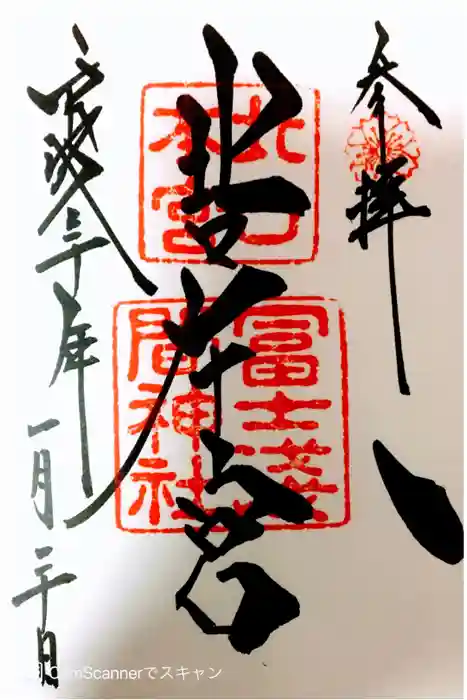 参拝
北口本宮
北口
本宮
冨士淺
間神社
平成三十年一月二十日
CamScannerでスキャン